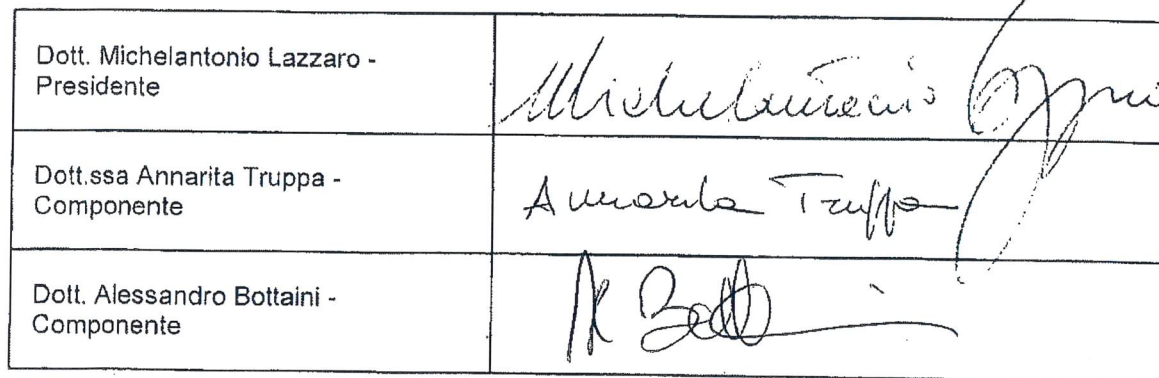 Dott. Michelantonio Lazzaro -
Presidente
Michelantonio
Dott.ssa Annarita Truppa -
Componente
Annarita Truppa
Dott. Alessandro Bottaini -
Componente